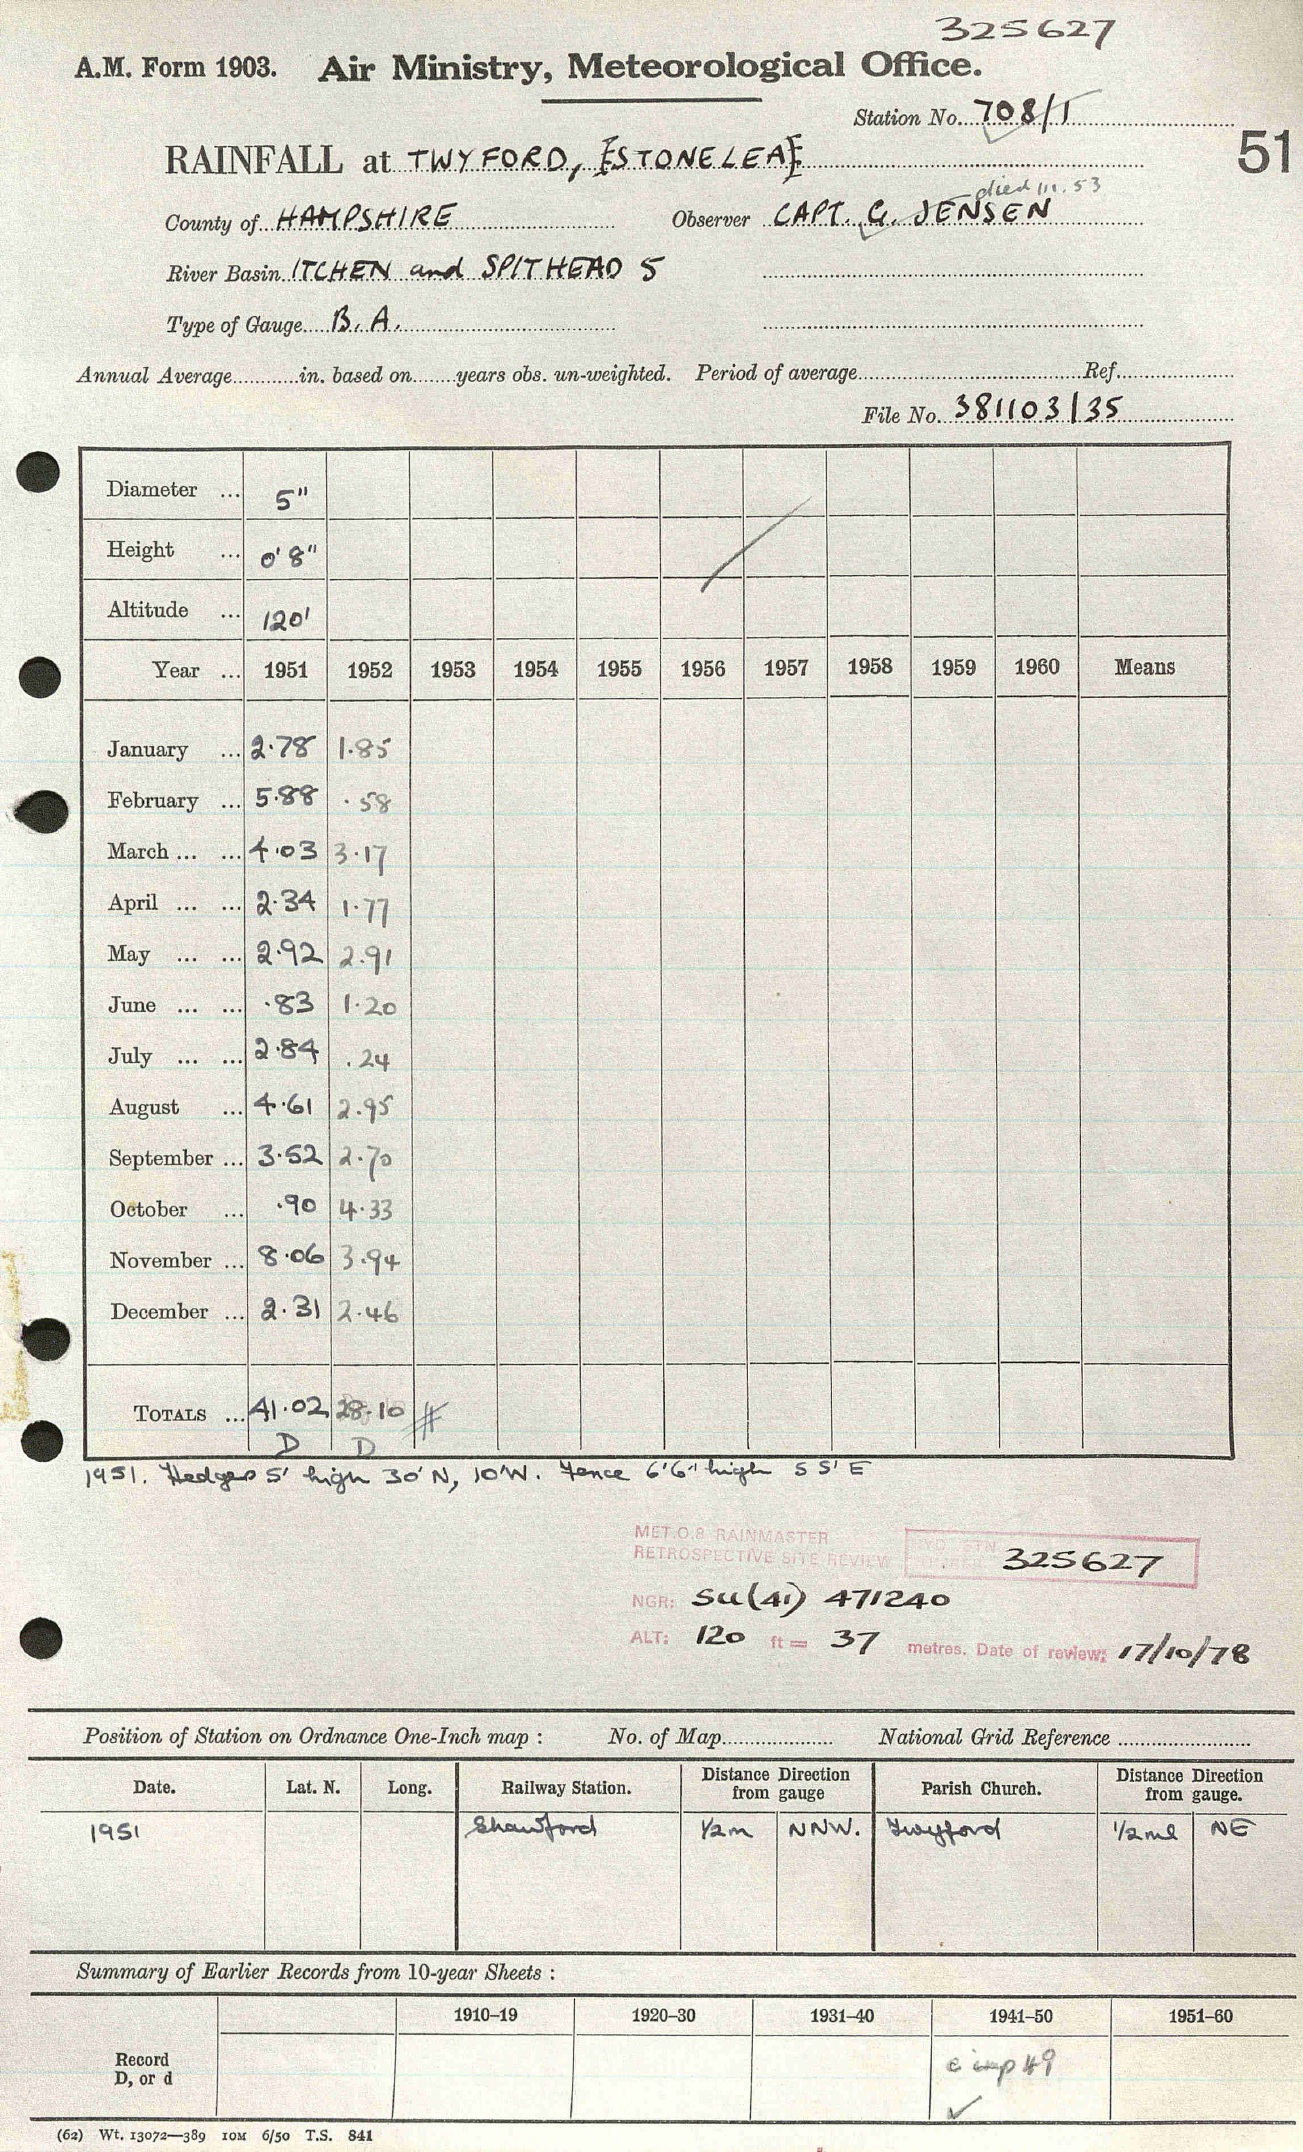 325627
A.M. Form 1903. Air Ministry, Meteorological Office.
Station No. 708/1
51
RAINFALL at TWYFORD, [STONELEA]
died 111.53
County of HAMPSHIRE Observer CAPT. G. JENSEN
River Basin ITCHEN and SPITHEAD 5
Type of Gauge B.A.
Annual Average............in. based on.......years obs. un-weighted. Period of average..............................Ref..................
File No. 381103/35
Diameter ... 5"
Height ... 0' 8"
Altitude ... 120'
Year ... 1951 1952 1953 1954 1955 1956 1957 1958 1959 1960 Means
January ... 2.78 1.85
February ... 5.88 .58
March ... ... 4.03 3.17
April ... ... 2.34 1.77
May ... ... 2.92 2.91
June ... ... .83 1.20
July ... ... 2.84 .24
August ... 4.61 2.95
September ... 3.52 2.70
October ... .90 4.33
November ... 8.06 3.94
December ... 2.31 2.46
TOTALS ... 41.02 28.10 #
D D
1951. Hedges 5' high 30'N, 10'W. Fence 6'6" high 5 5' E
MET.O.8 RAINMASTER
RETROSPECTIVE SITE REVIEW 325627
NGR: SU(41) 471240
ALT: 120 ft = 37 metres. Date of review: 17/10/78
Position of Station on Ordnance One-Inch map : No. of Map.................... National Grid Reference ........................
Date. Lat. N. Long. Railway Station. Distance Direction from gauge Parish Church. Distance Direction from gauge.
1951 Shawford 1/2m NNW. Twyford 1/2ml NE
Summary of Earlier Records from 10-year Sheets :
1910–19 1920–30 1931–40 1941–50 1951–60
Record
D, or d
c imp 49
✓
(62) Wt. 13072—389 10M 6/50 T.S. 841